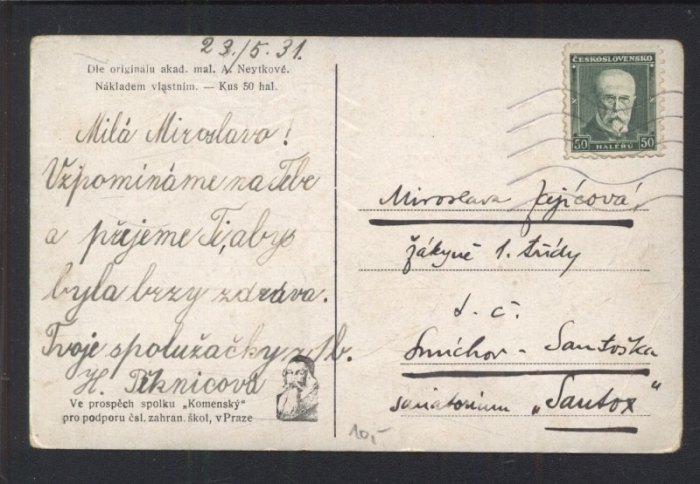 23./5. 31.
Dle originálu akad. mal. A. Neytkové.
Nákladem vlastním. — Kus 50 hal.
Milá Miroslavo!
Vzpomínáme na Tebe
a přejeme Ti, abys
byla brzy zdráva.
Tvoje spolužačky z 1b.
H.
Ve prospěch spolku „Komenský"
pro podporu čsl. zahran. škol, v Praze
ČESKOSLOVENSKO
50 HALÉŘŮ 50
Miroslava
žákyně 1. třídy
t. č.
Smíchov - Santoška
sanatorium „Santox"
10,-